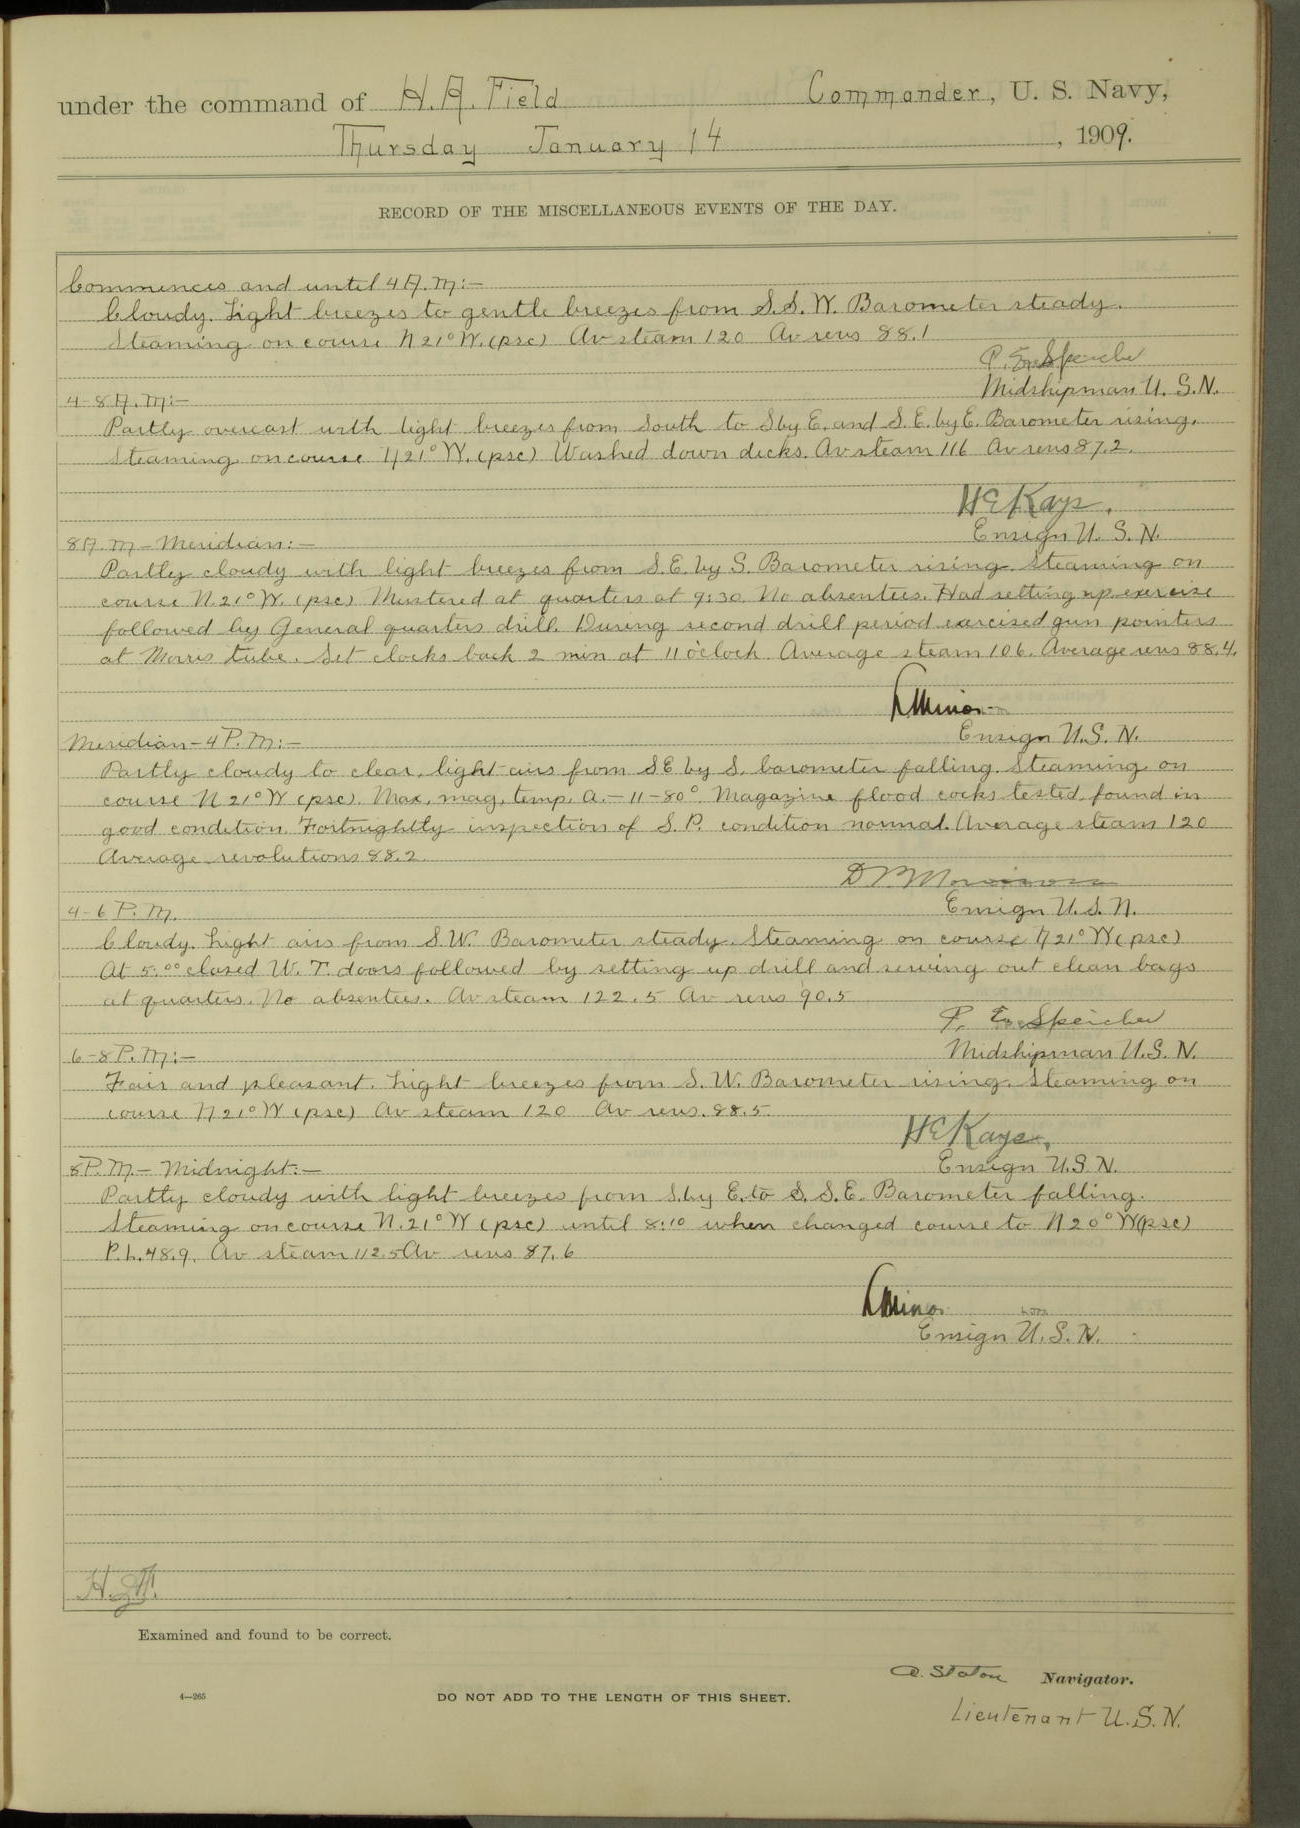 under the command of H. A. Field Commander, U. S. Navy,
Thursday January 14, 1909.
RECORD OF THE MISCELLANEOUS EVENTS OF THE DAY.
Commences and until 4 A.M:—
Cloudy. Light breezes to gentle breezes from S.S.W. Barometer steady.
Steaming on course N 21° W. (psc) Av steam 120 Av revs 88.1
P. E. Speicher
Midshipman U. S. N.
4-8 A.M:—
Partly overcast with light breezes from South to S by E. and S. E. by E. Barometer rising.
Steaming on course N 21° W. (psc) Washed down decks. Av steam 116 Av revs 87.2.
H E Kays.
Ensign U. S. N.
8 A.M — Meridian:—
Partly cloudy with light breezes from S.E. by S. Barometer rising. Steaming on
course N. 21° W. (psc) Mustered at quarters at 9:30. No absentees. Had setting up exercise
followed by General quarters drill. During second drill period exercised gun pointers
at Morris tube. Set clocks back 2 min at 11 o'clock. Average steam 106. Average revs 88.4.
L Minor
Ensign U.S. N.
Meridian — 4 P.M:—
Partly cloudy to clear, light airs from SE by S. barometer falling. Steaming on
course N 21° W (psc). Max. mag. temp. A.-11-80°. Magazine flood cocks tested found in
good condition. Fortnightly inspection of S.P. condition normal. Average steam 120
Average revolutions 88.2.
Ensign U.S.N.
4-6 P.M.
Cloudy. Light airs from S.W. Barometer steady. Steaming on course N 21° W (psc)
At 5.00 closed W. T. doors followed by setting up drill and serving out clean bags
at quarters. No absentees. Av steam 122.5 Av revs 90.5
P. E. Speicher
Midshipman U.S. N.
6-8 P.M:—
Fair and pleasant. Light breezes from S. W. Barometer rising. Steaming on
course N 21° W (psc) Av steam 120 Av revs. 88.5
H E Kays.
Ensign U.S N.
8 P.M.— Midnight:—
Partly cloudy with light breezes from S. by E. to S. S. E. Barometer falling.
Steaming on course N. 21° W (psc) until 8:10 when changed course to N 20° W (psc)
P.L. 48.9. Av steam 112.5 Av revs 87.6
L Minor
Ensign U. S. N.
Examined and found to be correct.
A. Staton Navigator.
4—265 DO NOT ADD TO THE LENGTH OF THIS SHEET.
Lieutenant U.S.N.